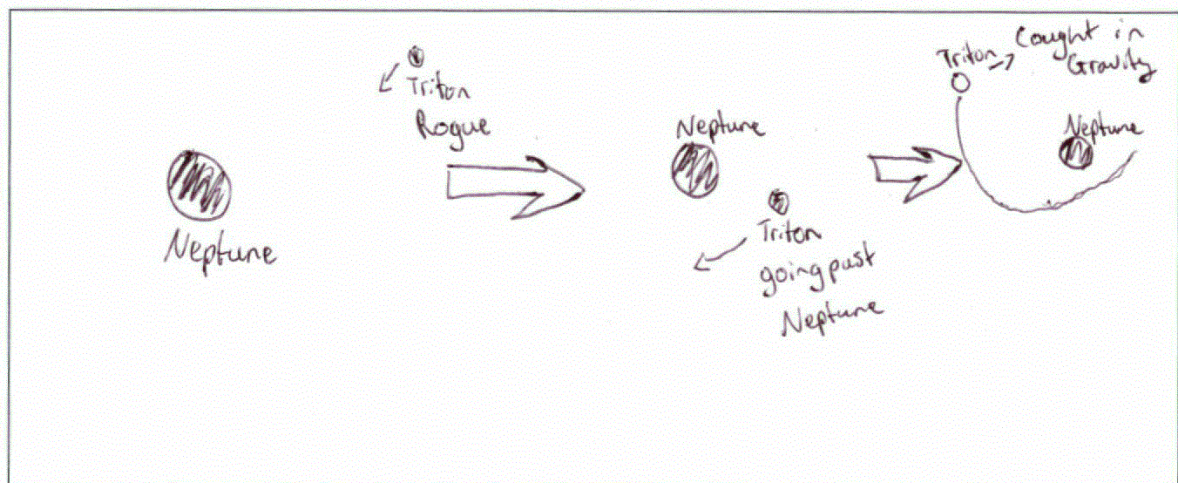 Triton
Rogue
Neptune
Neptune
Triton
going past
Neptune
Triton → Caught in
Gravity
Neptune